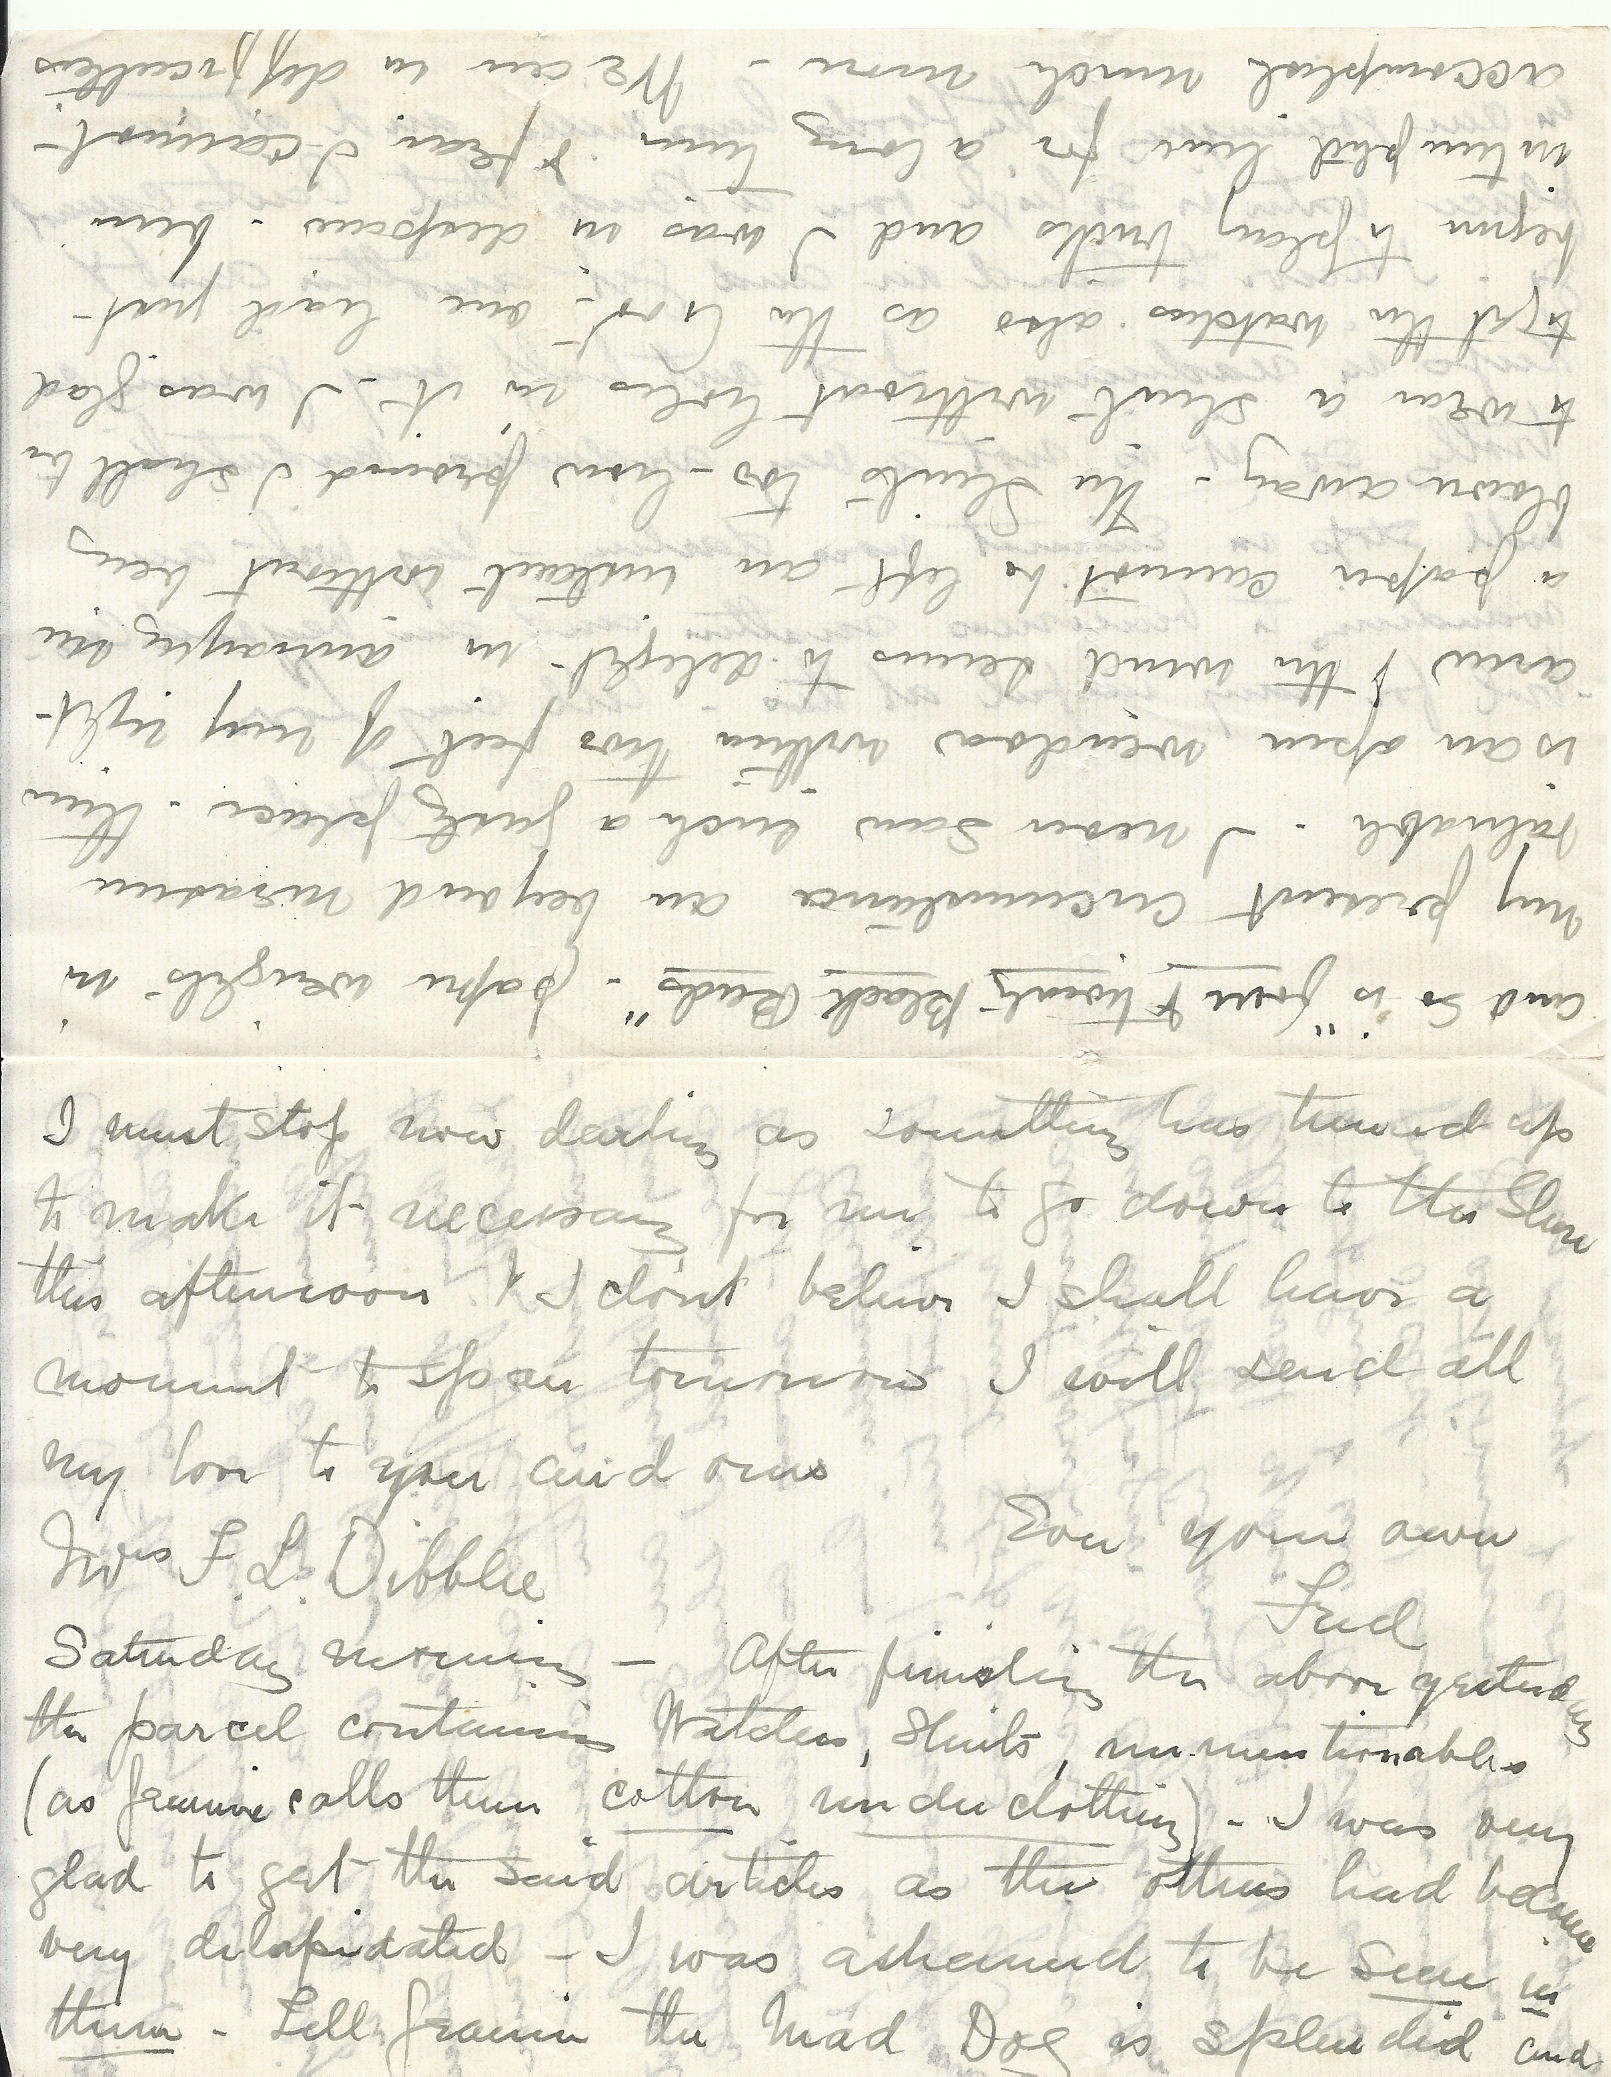 I must stop now darling as something has turned up
to make it necessary for me to go down to the Slum
this afternoon & I dont believe I shall have a
moment to spare tomorrow I will send all
my love to you and ours
Ever your own
Fred
Mrs F. L. Dibblee
Saturday morning - After finishing the above yesterday
the parcel containing Watches, Shirts, unmentionables
(as Jeannie calls them cotton underclothing) - I was very
glad to get the said articles as the others had become
very dilapidated - I was ashamed to be seen in
them - Tell Jeannie the Mad Dog is splendid and
and so is "four & twenty Black Birds" - paper weights in
my present circumstances are beyond measure
valuable. I never saw such a gusty place. There
is an open window within two feet of my right
arm & the wind seems to delight in annoying me
a paper cannot be left an instant without being
blown away - The Shirts too - how proud I shall be
to wear a shirt without holes in it - I was glad
to get the watches also as the last one had just
begun to play tricks and I was in despair - been
interrupted here for a long time & fear I cannot
accomplish much more - We are in difficulties